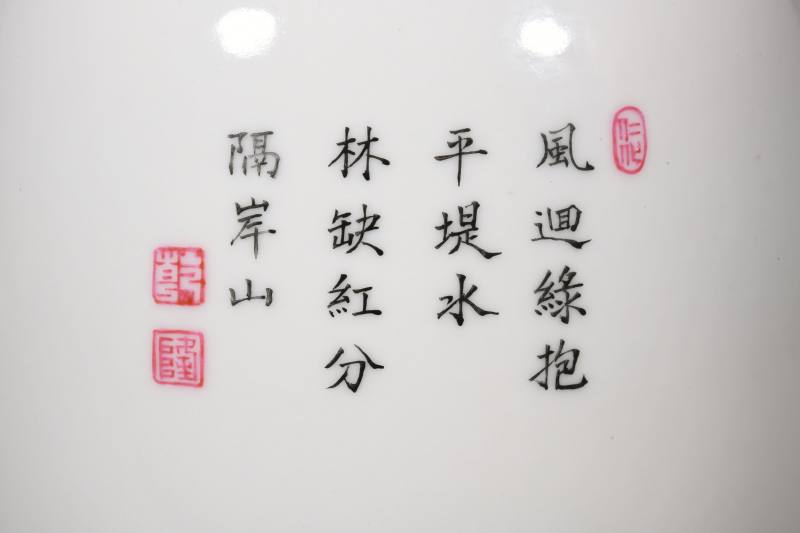 風迴綠抱
平堤水
林缺紅分
隔岸山
乾
隆